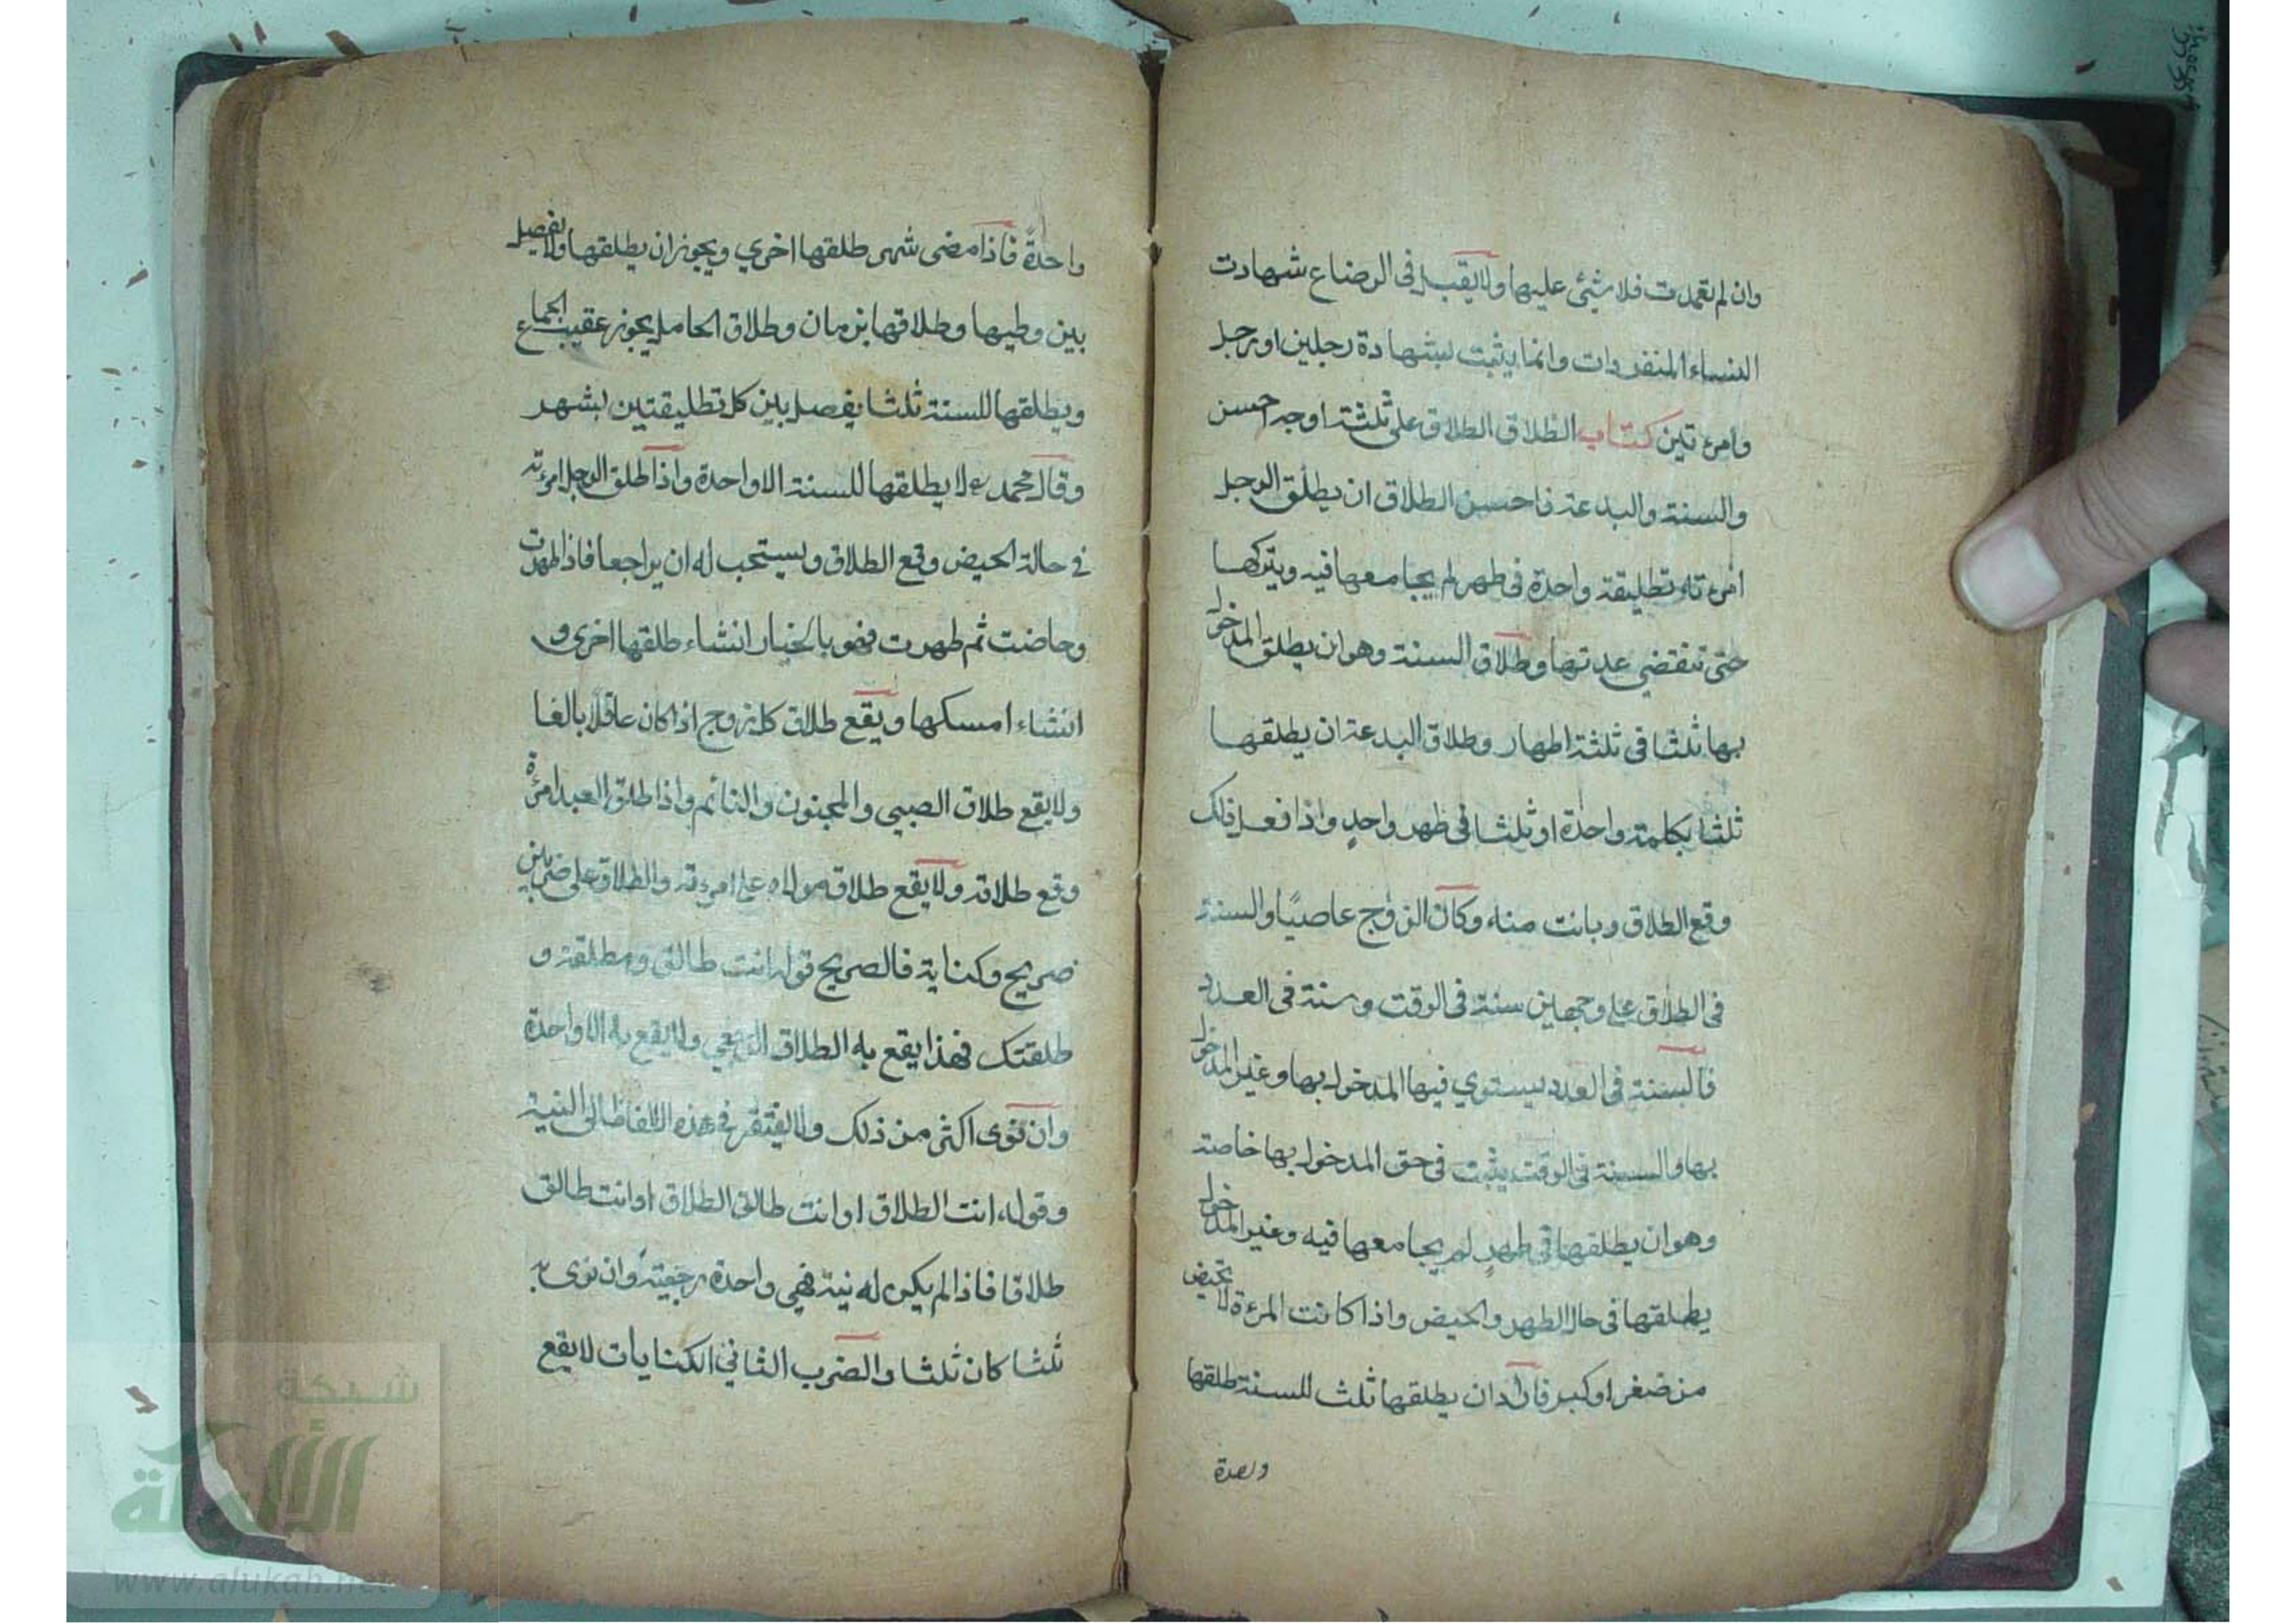 وان لم تعمدت فلا شئ عليها ولا يقبل في الرضاع شهادت
النساء المنفردات وانما يثبت بشهادة رجلين او رجل
وامرءتين كتاب الطلاق الطلاق على ثلثة اوجه احسن
والسنة والبدعة فاحسن الطلاق ان يطلق الرجل
امرءته تطليقة واحدة في طهر لم يجامعها فيه ويتركها
حتى تنقضي عدتها وطلاق السنة وهو ان يطلق المدخول
بها ثلثا في ثلثة اطهار وطلاق البدعة ان يطلقها
ثلثا بكلمة واحدة او ثلثا في طهر واحدٍ واذا فعل ذلك
وقع الطلاق وبانت منه وكان الزوج عاصيًا والسنة
في الطلاق على وجهين سنة في الوقت وسنة في العدد
فالسنة في العدد يستوي فيها المدخول بها وغير المدخول
بها والسنة في الوقت يثبت في حق المدخول بها خاصة
وهو ان يطلقها في طهرٍ لم يجامعها فيه وغير المدخول
يطلقها في حال الطهر والحيض واذا كانت المرءة لا تحيض
من صغر او كبر فاراد ان يطلقها ثلث للسنة طلقها
واحدة
واحدةً فاذا مضى شهر طلقها اخري ويجوز ان يطلقها ولا يفصل
بين وطيها وطلاقها بزمان وطلاق الحامل يجوز عقيب الجماع
ويطلقها للسنة ثلثا يفصل بين كل تطليقتين بشهر
وقال محمد لا يطلقها للسنة الا واحدة واذا طلق الرجل امرءته
في حالة الحيض وقع الطلاق ويستحب له ان يراجعا فاذا طهرت
وحاضت ثم طهرت فهو بالخيار انشاء طلقها اخرى و
انشاء امسكها ويقع طلاق كل زوج اذا كان عاقلا بالغا
ولا يقع طلاق الصبي والمجنون والنائم واذا طلق العبد امرءة
وقع طلاقه ولا يقع طلاق مولاه على امرءته والطلاق على ضربين
صريح وكناية فالصريح قوله انت طالق ومطلقة و
طلقتك فهذا يقع به الطلاق الرجعي ولا يقع به الا واحدة
وان نوى اكثر من ذلك ولا يفتقر في هذه الالفاظ الى النية
وقوله انت الطلاق او انت طالق الطلاق او انت طالق
طلاقا فاذا لم يكن له نية فهي واحدة رجعية وان نوى به
ثلثا كان ثلثا والضرب الثاني الكنايات لا يقع
شبكة
الألوكة
www.alukah.net